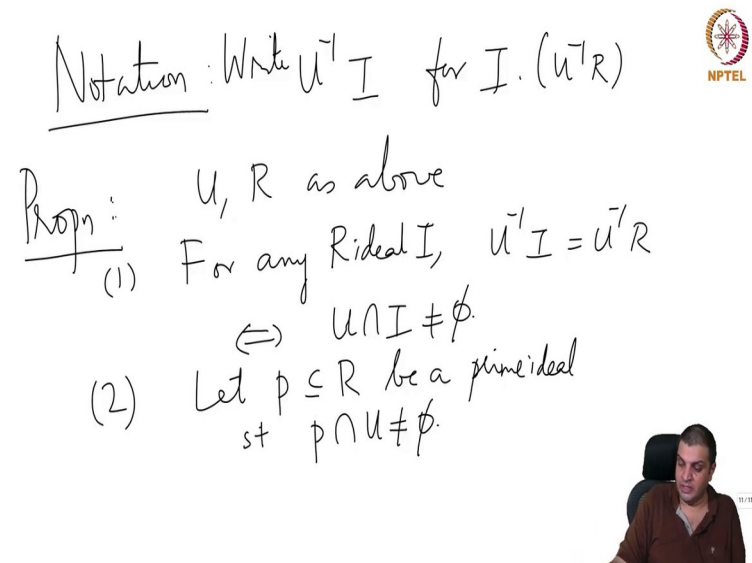 Notation: Write U⁻¹ I for I. (U⁻¹R)
NPTEL
Propn: U, R as above
(1) For any R ideal I, U⁻¹ I = U⁻¹ R
⇔ U ∩ I ≠ ϕ.
(2) Let p ⊆ R be a prime ideal
st p ∩ U ≠ ϕ.
11/11